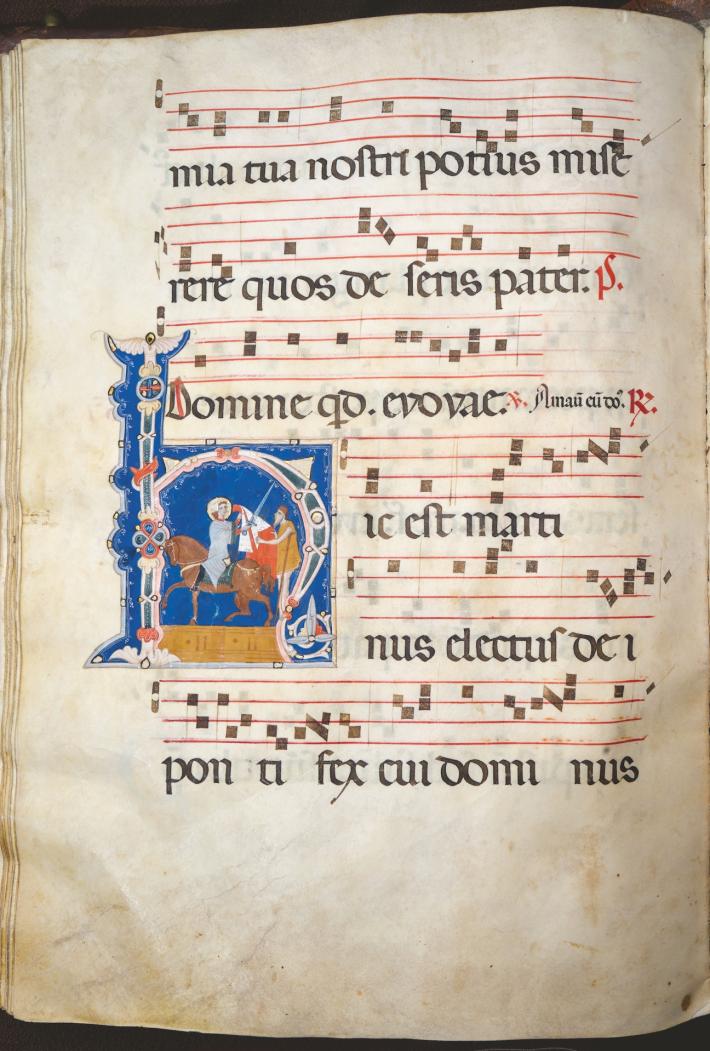 mia tua nostri potius mise
rere quos de seris pater. P.
Domine qd. evovae. Amaū eū do͂. R.
Hic est marti
nus electus de i
pon ti fex cui domi nus